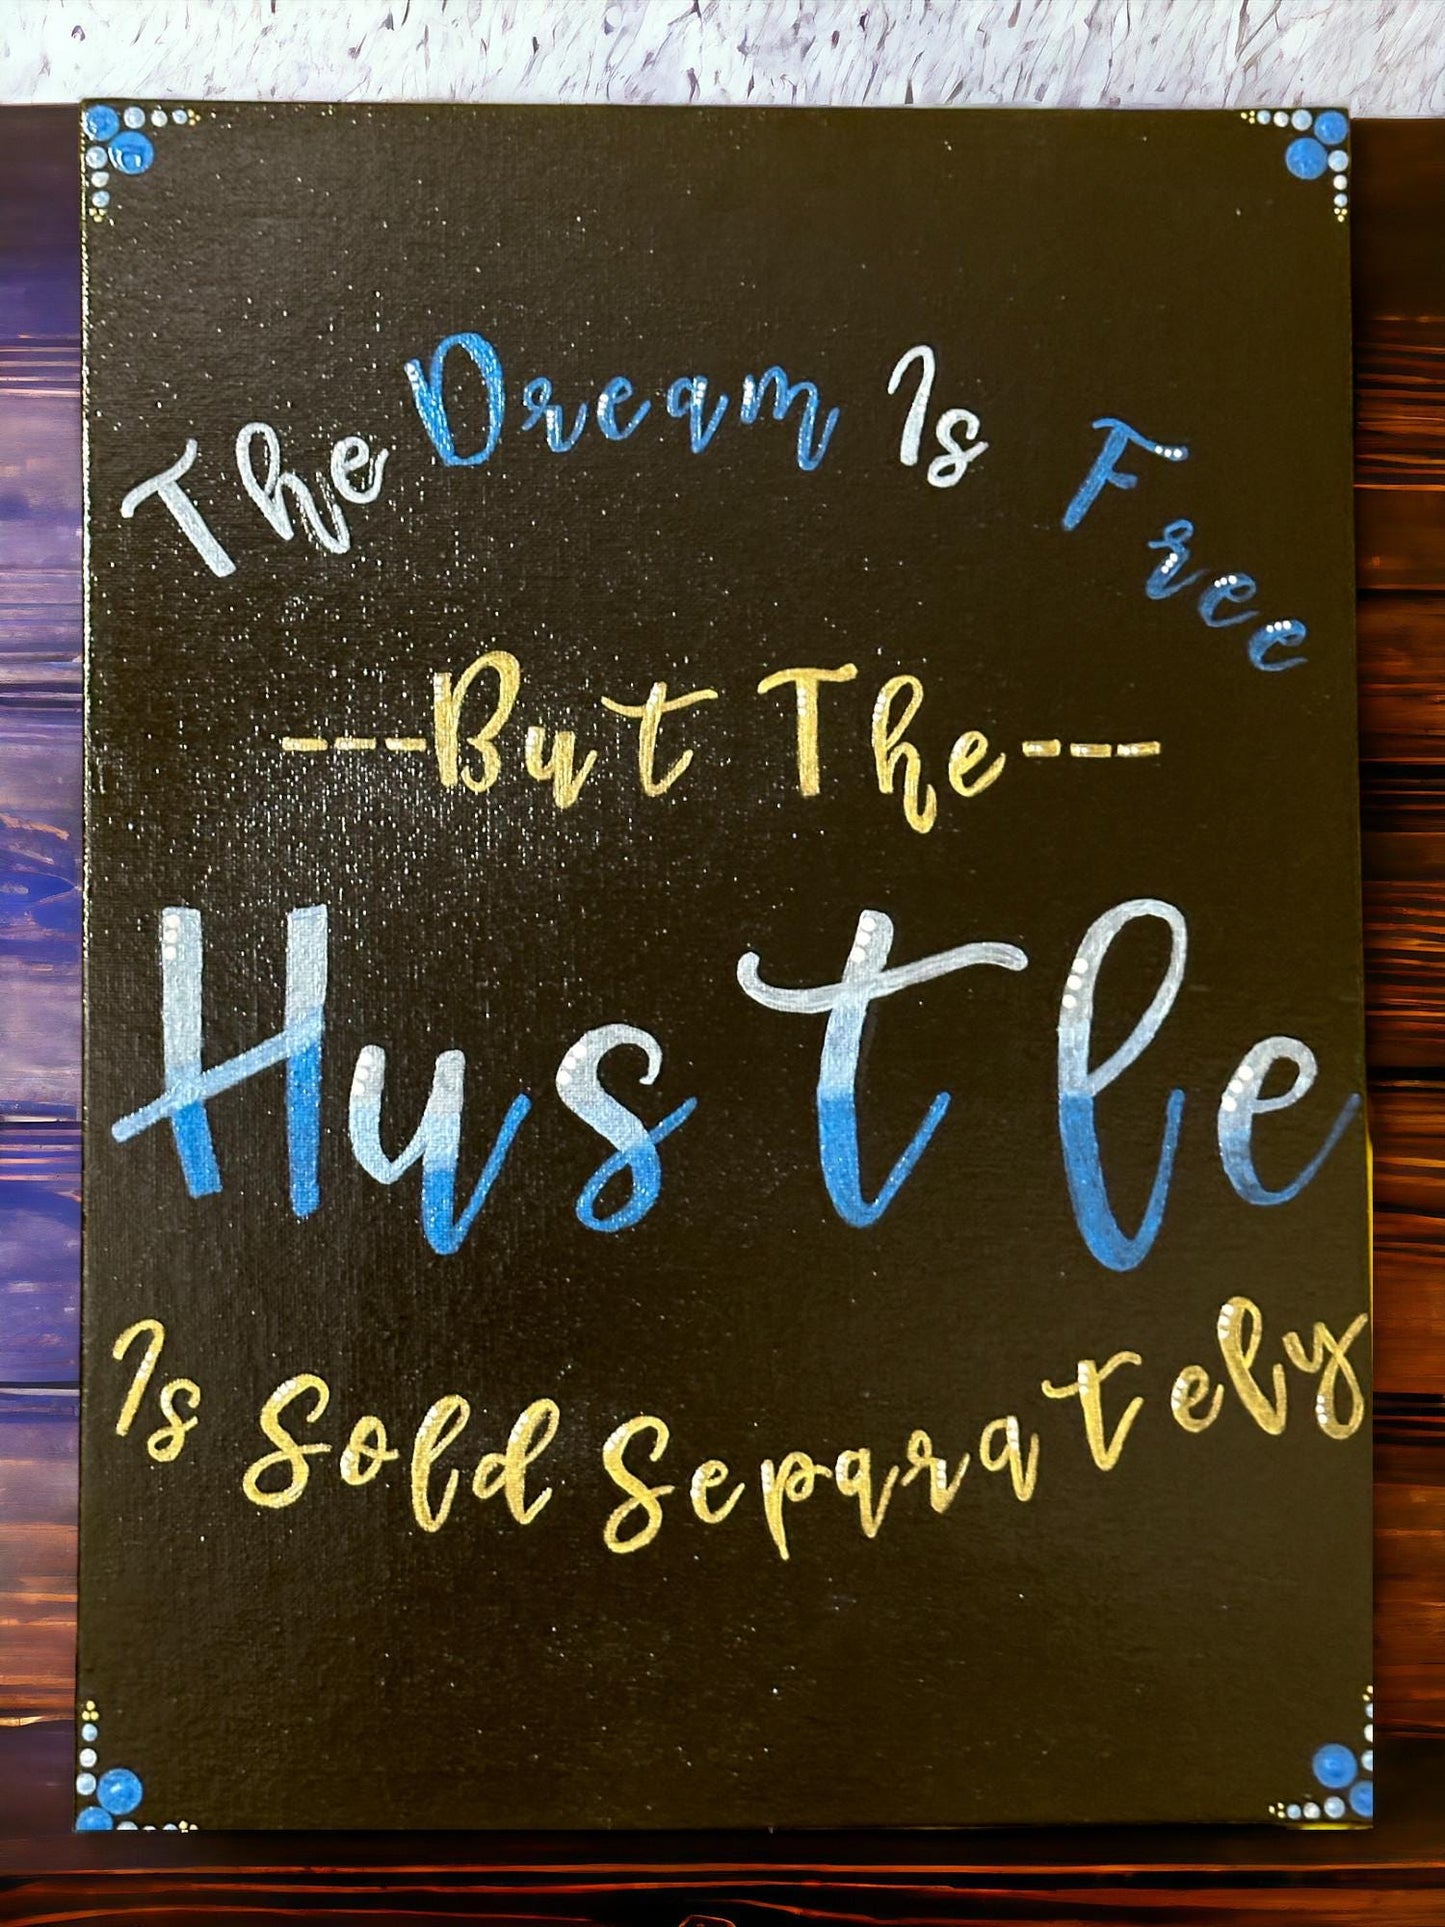 The Dream Is Free
---But The---
Hustle
Is Sold Separately